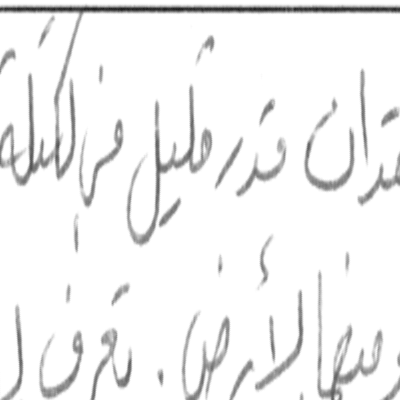 فقدان قدر قليل من الكتلة
ومنها الأرض . تعرف